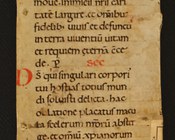 moue. inimici mar
tate Largire. et omnibus
fidelibus uiuis et defuncti
in terra uiuentiu uitam
et requiem eternā. c̄ce
de. P SEC
Ds qui singulari corpori
tui hostia totius mun
di soluisti delicta. hac
oblatione placatus macu
las scelerum nrōrū abster
et omniū xpianorum